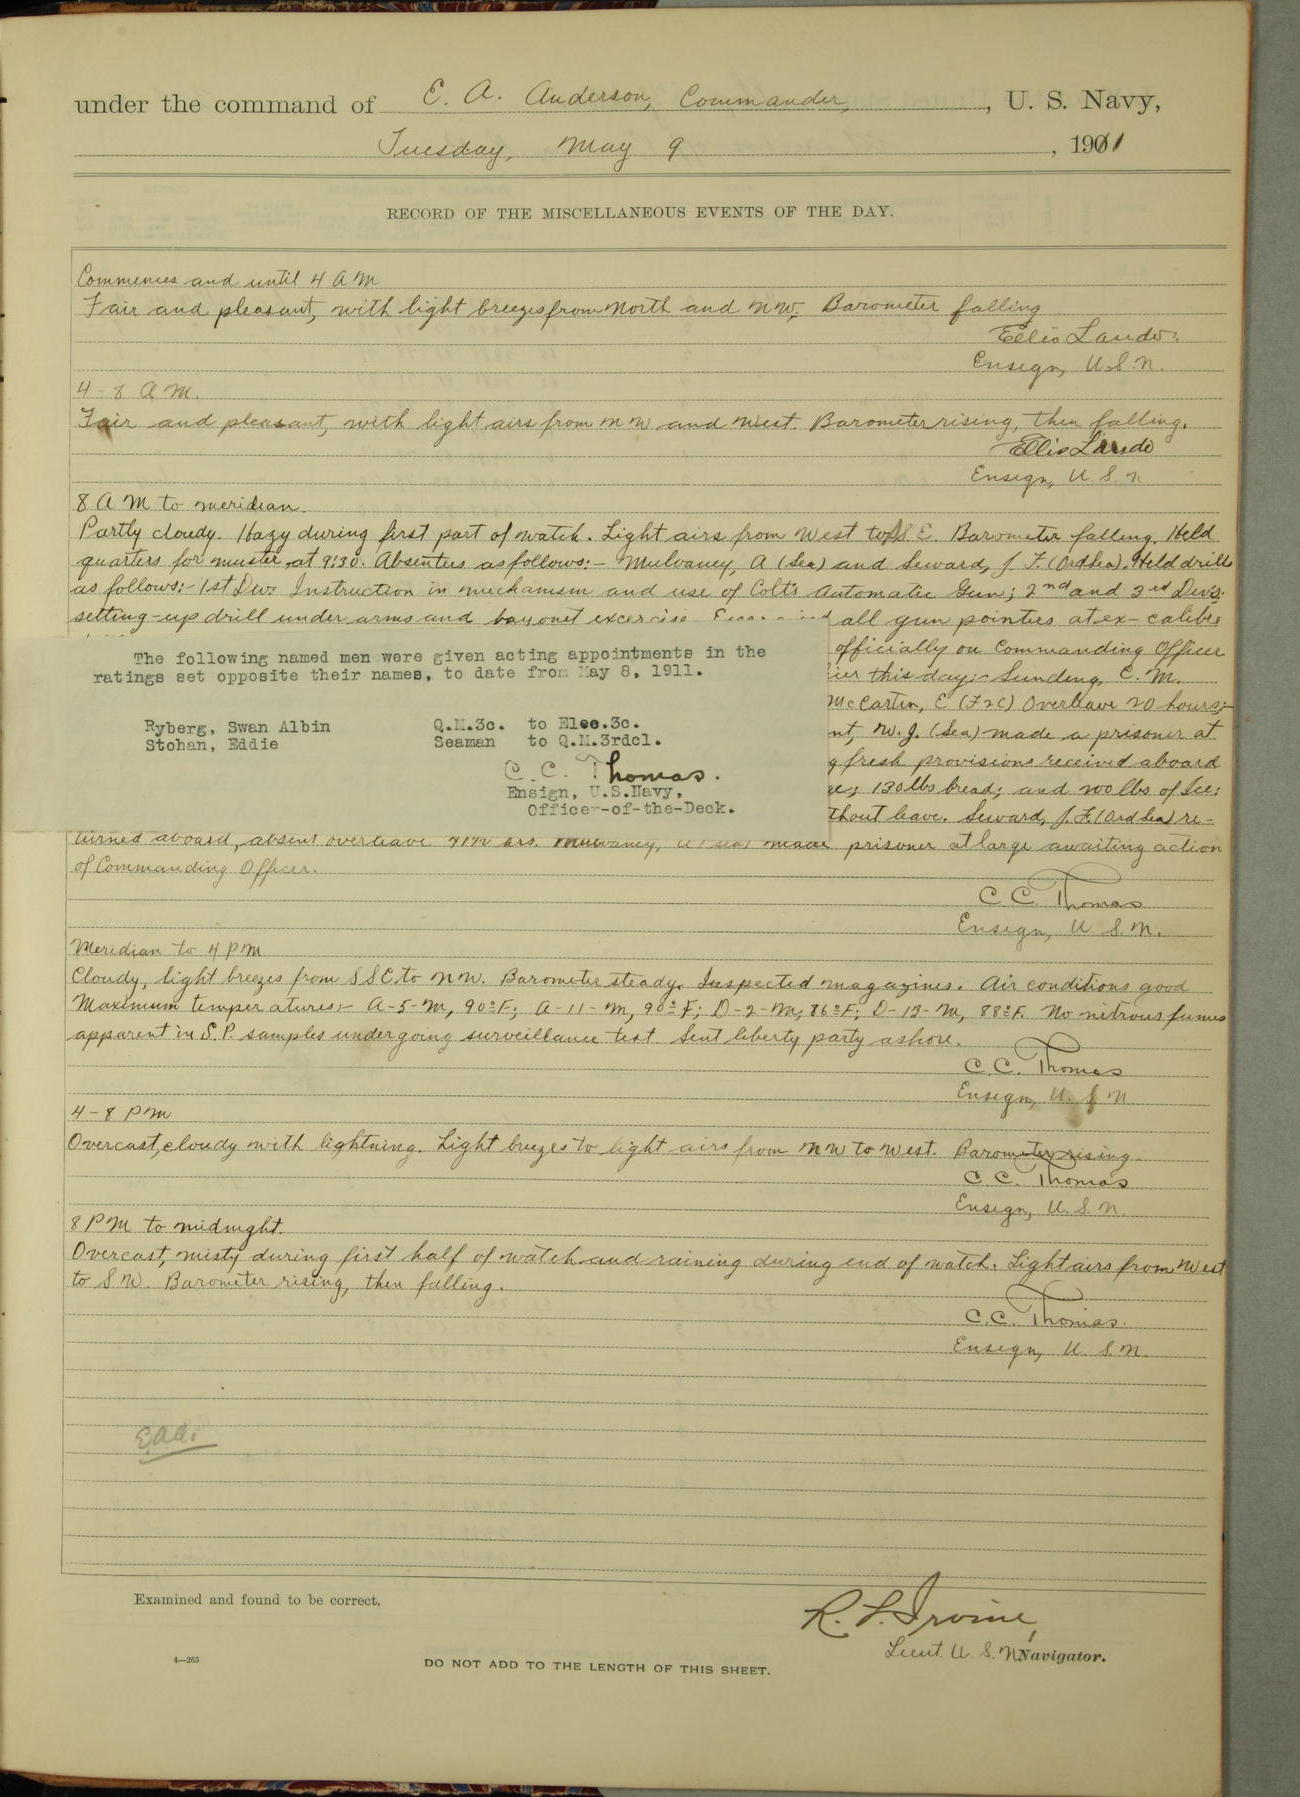 under the command of E. A. Anderson, Commander, , U. S. Navy,
Tuesday, May 9 , 1911
RECORD OF THE MISCELLANEOUS EVENTS OF THE DAY.
Commences and until 4 A M
Fair and pleasant, with light breezes from North and NW. Barometer falling
Ellis Lando.
Ensign, U.S.N.
4 - 8 A M.
Fair and pleasant, with light airs from NW and West. Barometer rising, then falling.
Ellis Lando
Ensign, U. S. N
8 A M to meridian.
Partly cloudy. Hazy during first part of watch. Light airs from West to S. E. Barometer falling. Held
quarters for muster at 9:30. Absentees as follows:- Mulvaney, A (Sea) and Seward, J. F. (Ord Sea). Held drill
as follows:- 1st Div. Instruction in mechanism and use of Colt's Automatic Gun; 2nd and 3rd Divs.
setting-up drill under arms and bayonet excercise. all gun pointers at ex-calibre
The following named men were given acting appointments in the
ratings set opposite their names, to date from May 8, 1911.
Ryberg, Swan Albin Q.M.3c. to Elec.3c.
Stohan, Eddie Seaman to Q.M.3rdcl.
C. C. Thomas.
Ensign, U.S.Navy,
Officer-of-the-Deck.
officially on Commanding Officer
this day:- Sunding, C. M.
McCartin, E (F2C) Overleave 20 hours;-
nt, W. J. (Sea) made a prisoner at
g fresh provisions received aboard
130 lbs bread; and 200 lbs of Ice:
thout leave. Seward, J. F. (Ord Sea) re-
turned aboard, absent overleave hrs. Mulvaney, A (Sea) made prisoner at large awaiting action
of Commanding Officer.
C. C. Thomas
Ensign, U. S. N.
Meridian to 4 P M
Cloudy, light breezes from SSE to NW. Barometer steady. Inspected magazines. Air conditions good
Maximum temperatures:- A-5-M, 90°F; A-11-M, 90°F; D-2-M, 86°F; D-13-M, 88°F. No nitrous fumes
apparent in S.P. samples undergoing surveillance test. Sent liberty party ashore.
C. C. Thomas
Ensign, U. S N
4 - 8 P M
Overcast, cloudy with lightning. Light breezes to light airs from NW to West. Barometer rising.
C. C. Thomas
Ensign, U. S. N.
8 P M to midnight.
Overcast, misty during first half of watch and raining during end of watch. Light airs from West
to S W. Barometer rising, then falling.
C. C. Thomas.
Ensign, U. S. N.
E.A.A.
Examined and found to be correct.
R. L. Irvine,
Lieut. U. S. N. Navigator.
4—265
DO NOT ADD TO THE LENGTH OF THIS SHEET.